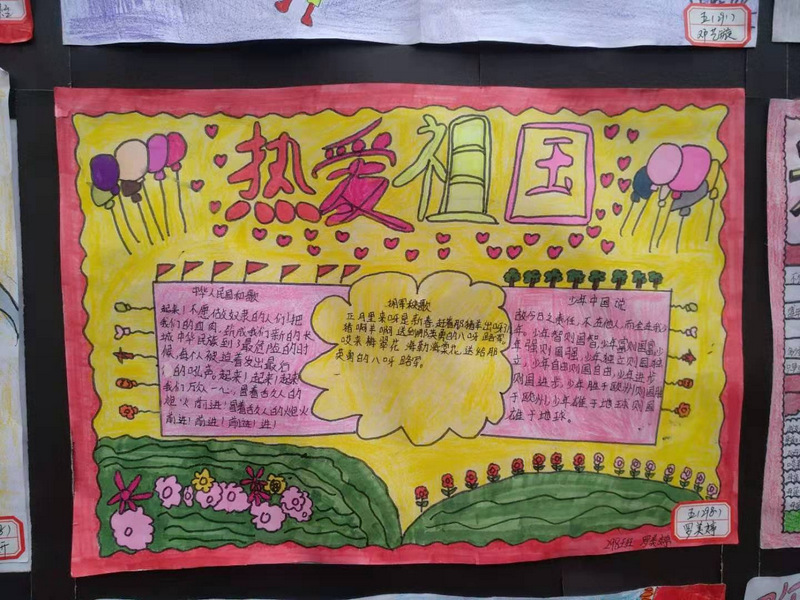 热爱祖国
中华人民国和歌
起来!不愿做奴隶的人们!把
我们的血肉,筑成我们新的长
城 中华民族到了最危险的时
候,每个人被迫着发出最后
的吼声。起来!起来!起来
我们万众一心,冒着古久人的
炮火 前进!冒着古久人的炮火
前进!前进!前进!进!
拥军秧歌
正月里来呀是新春,赶着那猪羊出呀门
猪啊羊啊 送到那英勇的八呀路军
哎来梅翠花 海勒海棠花 送给那
英勇的八呀 路军。
少年中国说
故今日之责任,不在他人,而全在我少
年。少年智则国智,少年富则国富,少
年强则国强,少年独立则国独
立,少年自由则国自由,少年进步
则国进步,少年胜于欧洲则国胜
于欧洲,少年雄于地球则国
雄于地球。
五(298)
罗美婷
298班 罗美婷